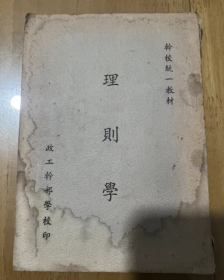 幹校統一教材
理則學
政工幹部學校印